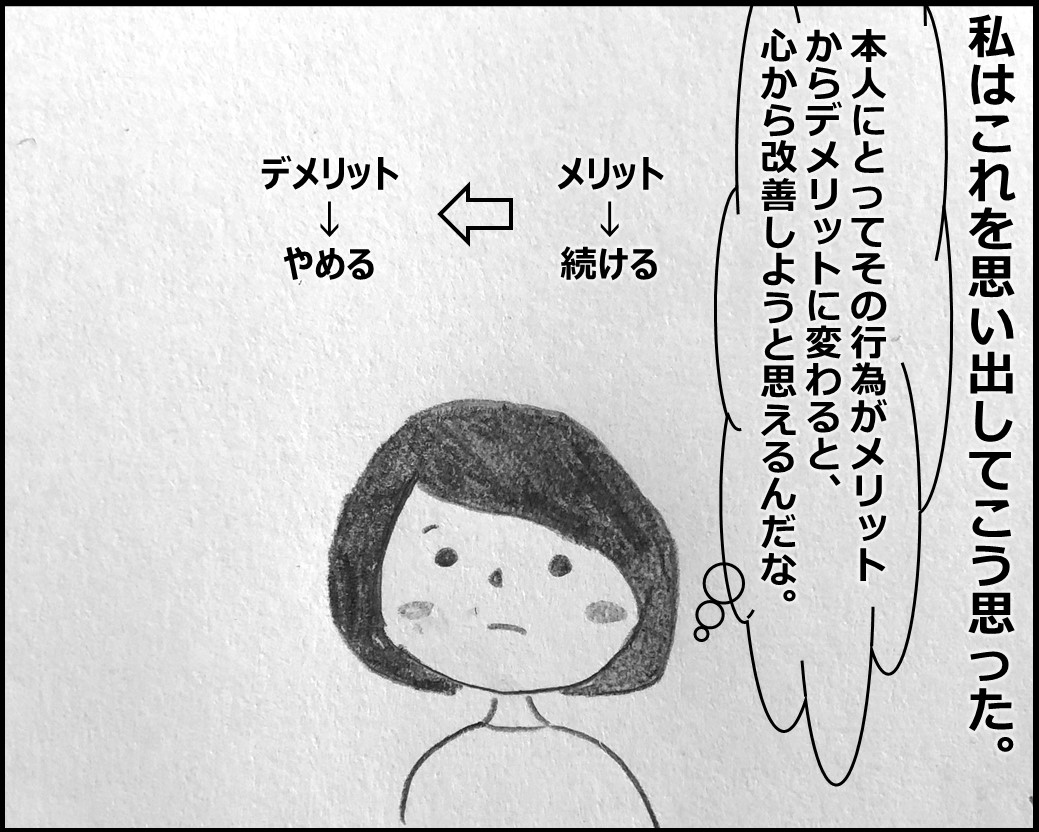 私はこれを思い出してこう思った。
本人にとってその行為がメリット
からデメリットに変わると、
心から改善しようと思えるんだな。
メリット
↓
続ける
デメリット
↓
やめる